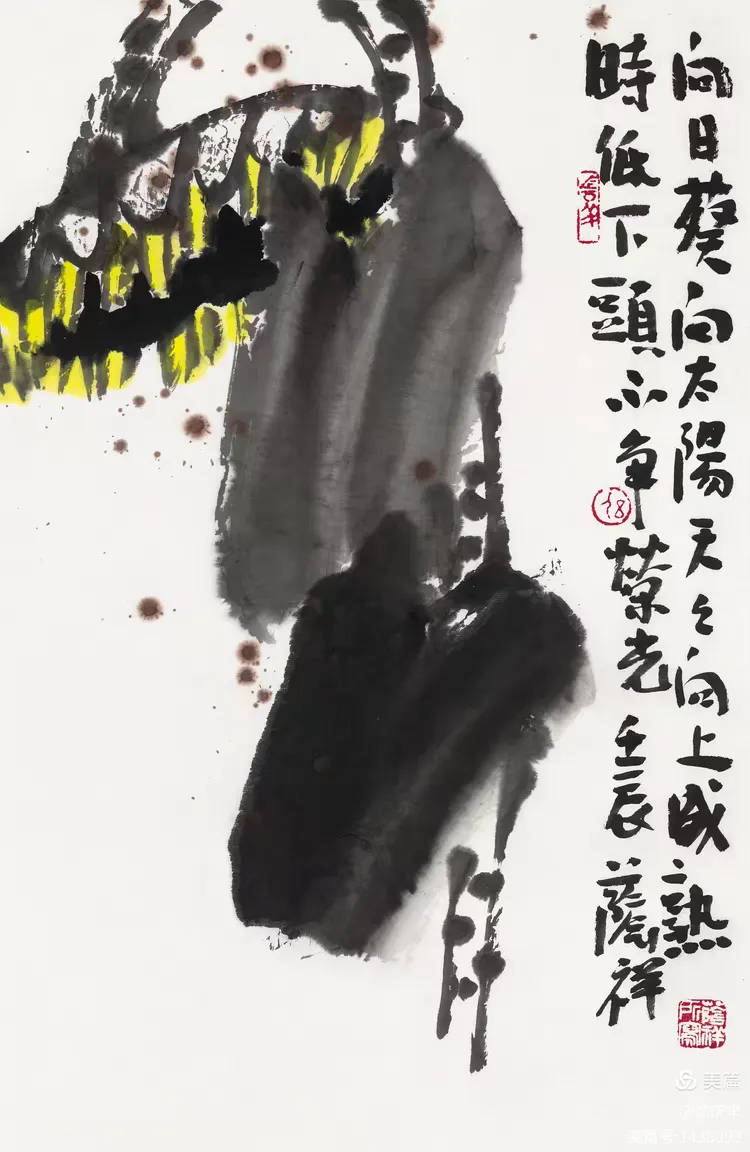 向日葵向太陽天々向上成熟
時低下頭不争榮光壬辰蔭祥
蔭祥所寫
美篇